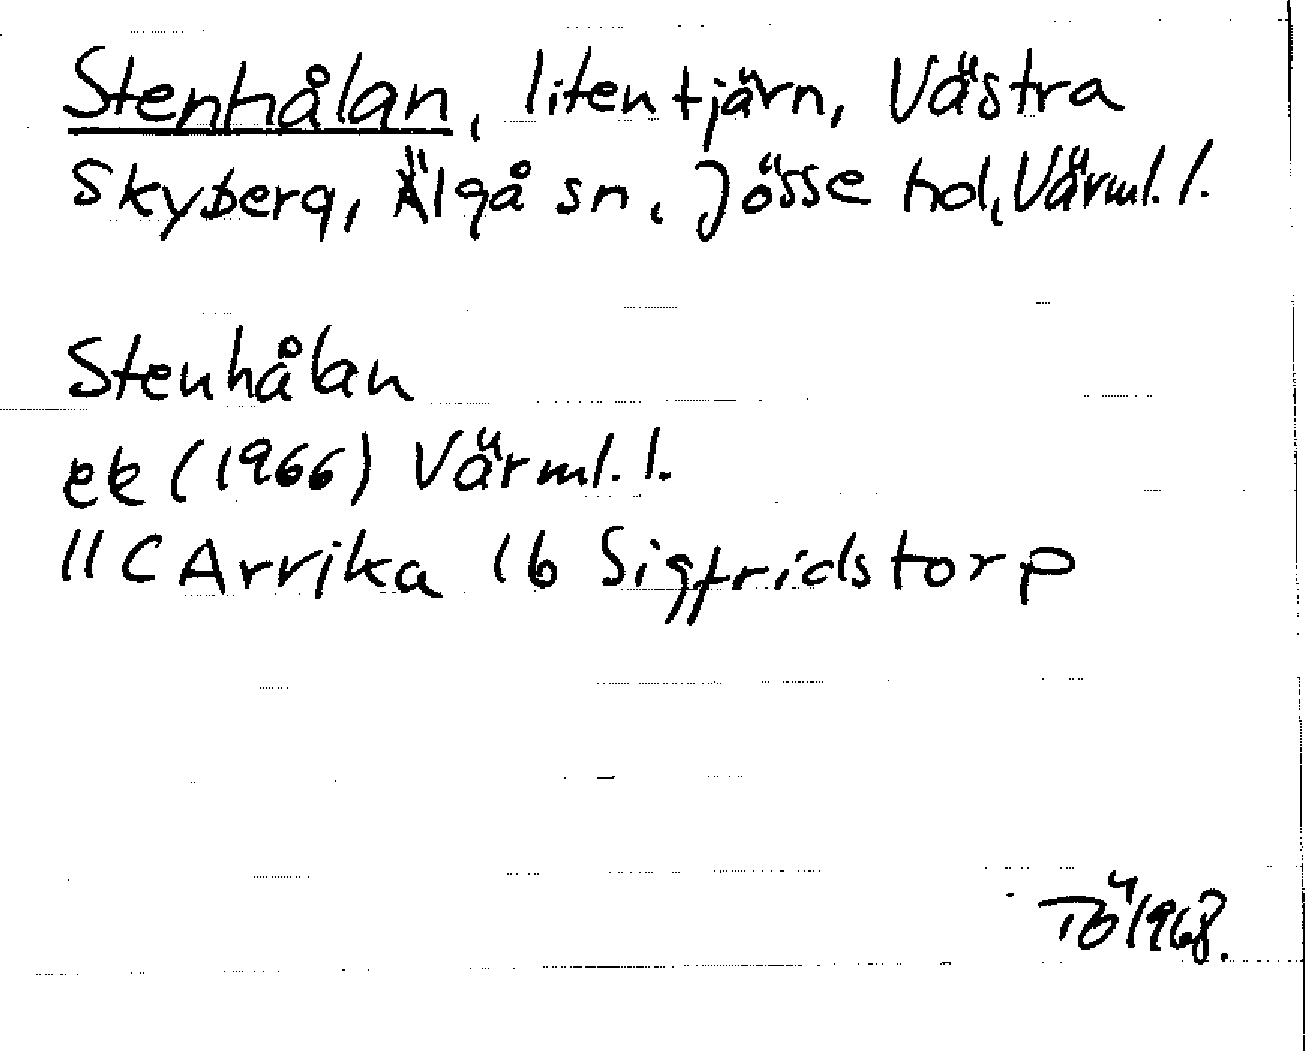 Stenhålan, liten tjärn, Västra
Skyberg, Älgå sn, Jösse hd, Värml. l.
Stenhålan
ek (1966) Värml. l.
11 C Arvika 1b Sigfridstorp
TÖ 1968.